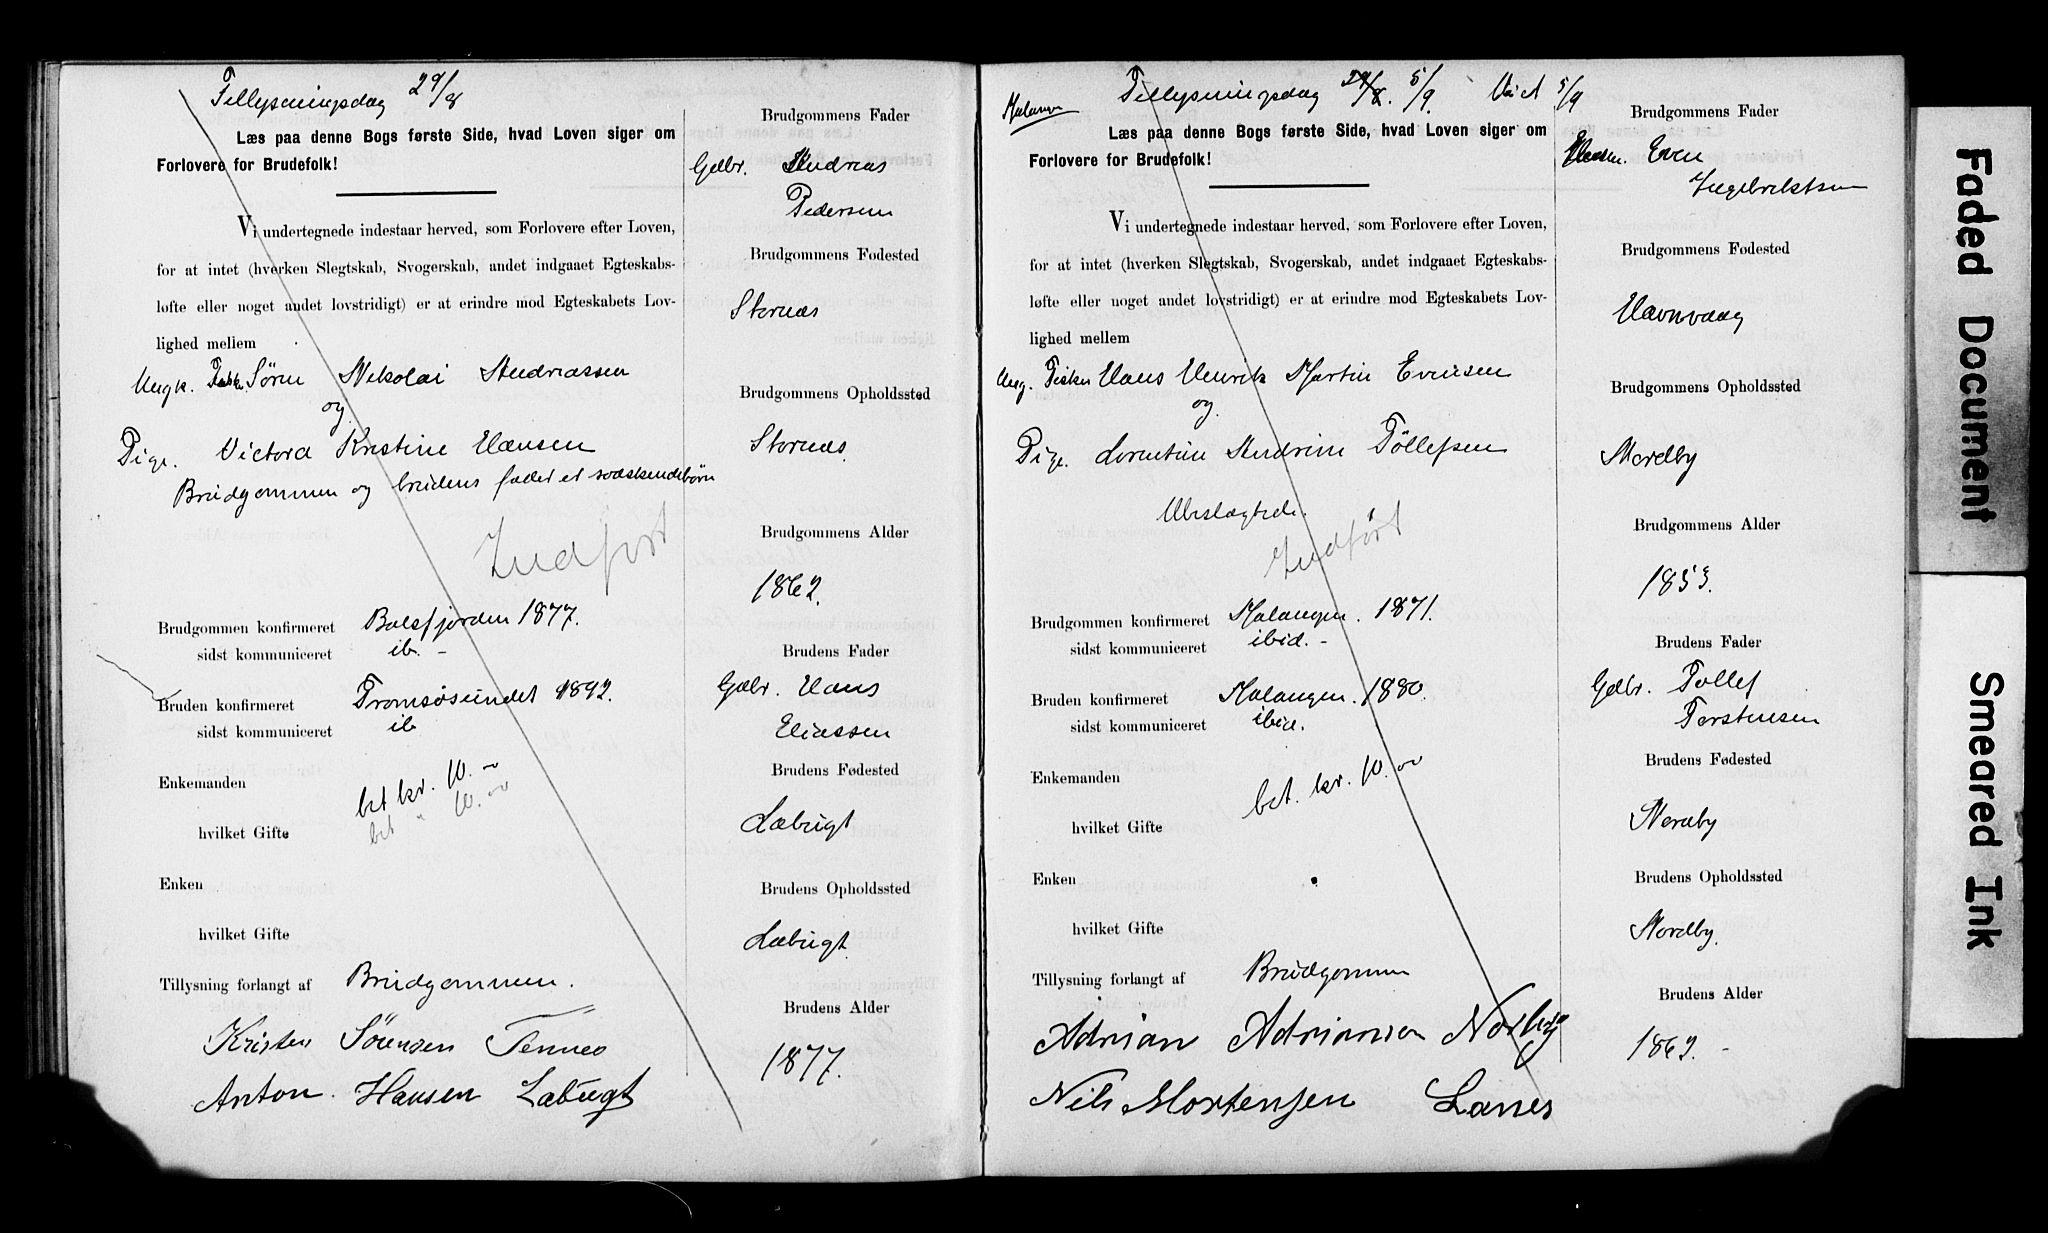 Tillysningsdag 29/8
Læs paa denne Bogs første Side, hvad Loven siger om
Forlovere for Brudefolk!
Vi undertegnede indestaar herved, som Forlovere efter Loven,
for at intet (hverken Slegtskab, Svogerskab, andet indgaaet Egteskabs-
løfte eller noget andet lovstridigt) er at erindre mod Egteskabets Lov-
lighed mellem
Ungk. Søren Nikolai Andreassen
og
Pige. Victora Kristine Hansen
Brudgommen og brudens fader er sødskendebørn
Indført
Brudgommen konfirmeret Balsfjorden 1877.
sidst kommuniceret ib. -
Bruden konfirmeret Tromsøsundet 1892.
sidst kommuniceret ib
Enkemanden bet kr. 10.-
hvilket Gifte bet " 10.-
Enken
hvilket Gifte
Tillysning forlangt af Brudgommen.
Kristen Sørensen Tennes
Anton Hansen Labugt
Brudgommens Fader
Gdbr. Andreas
Pedersen
Brudgommens Fødested
Stornæs
Brudgommens Opholdssted
Stornæs
Brudgommens Alder
1862.
Brudens Fader
Gdbr. Hans
Eliassen
Brudens Fødested
Læbugt
Brudens Opholdssted
Læbugt
Brudens Alder
1877.
Malangen Tillysningsdag 29/8. 5/9. Viet 5/9
Læs paa denne Bogs første Side, hvad Loven siger om
Forlovere for Brudefolk!
Vi undertegnede indestaar herved, som Forlovere efter Loven,
for at intet (hverken Slegtskab, Svogerskab, andet indgaaet Egteskabs-
løfte eller noget andet lovstridigt) er at erindre mod Egteskabets Lov-
lighed mellem
Ung. Fisker Hans Henrik Martin Evensen
og
Pige. Lorentine Andrine Tøllefsen
Ubeslægtede.
Indført
Brudgommen konfirmeret Malangen. 1871.
sidst kommuniceret ibid. -
Bruden konfirmeret Malangen. 1880.
sidst kommuniceret ibid.
Enkemanden bet. kr. 10.-
hvilket Gifte
Enken
hvilket Gifte
Tillysning forlangt af Brudgommen
Adrian Adriansen Norby
Nils Mortensen Lanes
Brudgommens Fader
Even
Ingebrektsen
Brudgommens Fødested
Havnvaag
Brudgommens Opholdssted
Nordby
Brudgommens Alder
1853.
Brudens Fader
Gdbr. Tollef
Torstensen
Brudens Fødested
Nordby
Brudens Opholdssted
Nordby.
Brudens Alder
1862. -
Faded Document
Smeared Ink